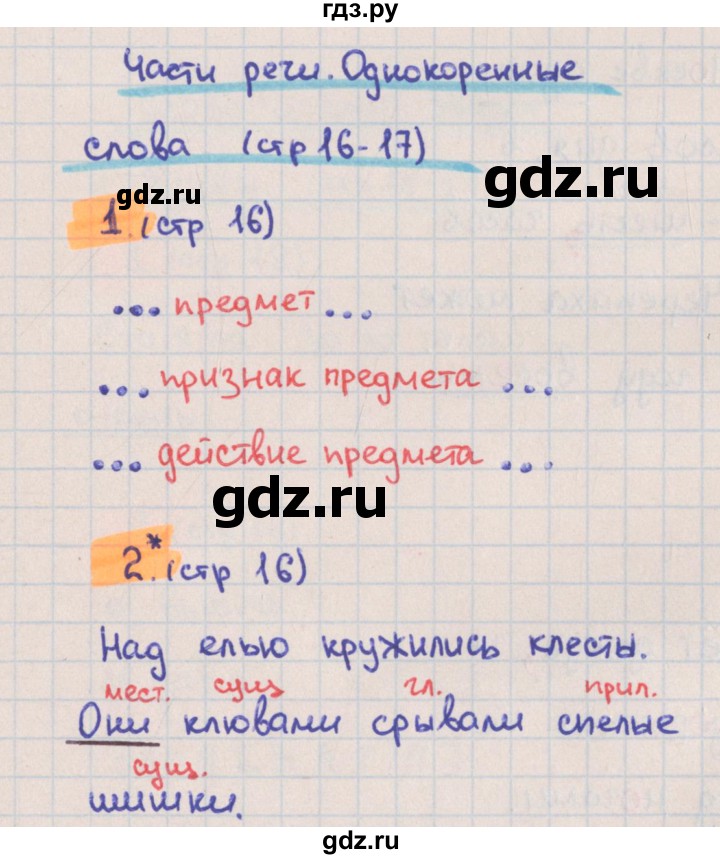 гдз.ру
Части речи. Однокоренные
слова (стр 16-17)
gdz.ru
gdz.ru
1. (стр 16)
... предмет ...
... признак предмета ...
... действие предмета ...
gdz.ru
2.* (стр 16)
Над елью кружились клесты.
мест. сущ гл. прил.
Они клювами срывали спелые
сущ.
шишки.
gdz.ru